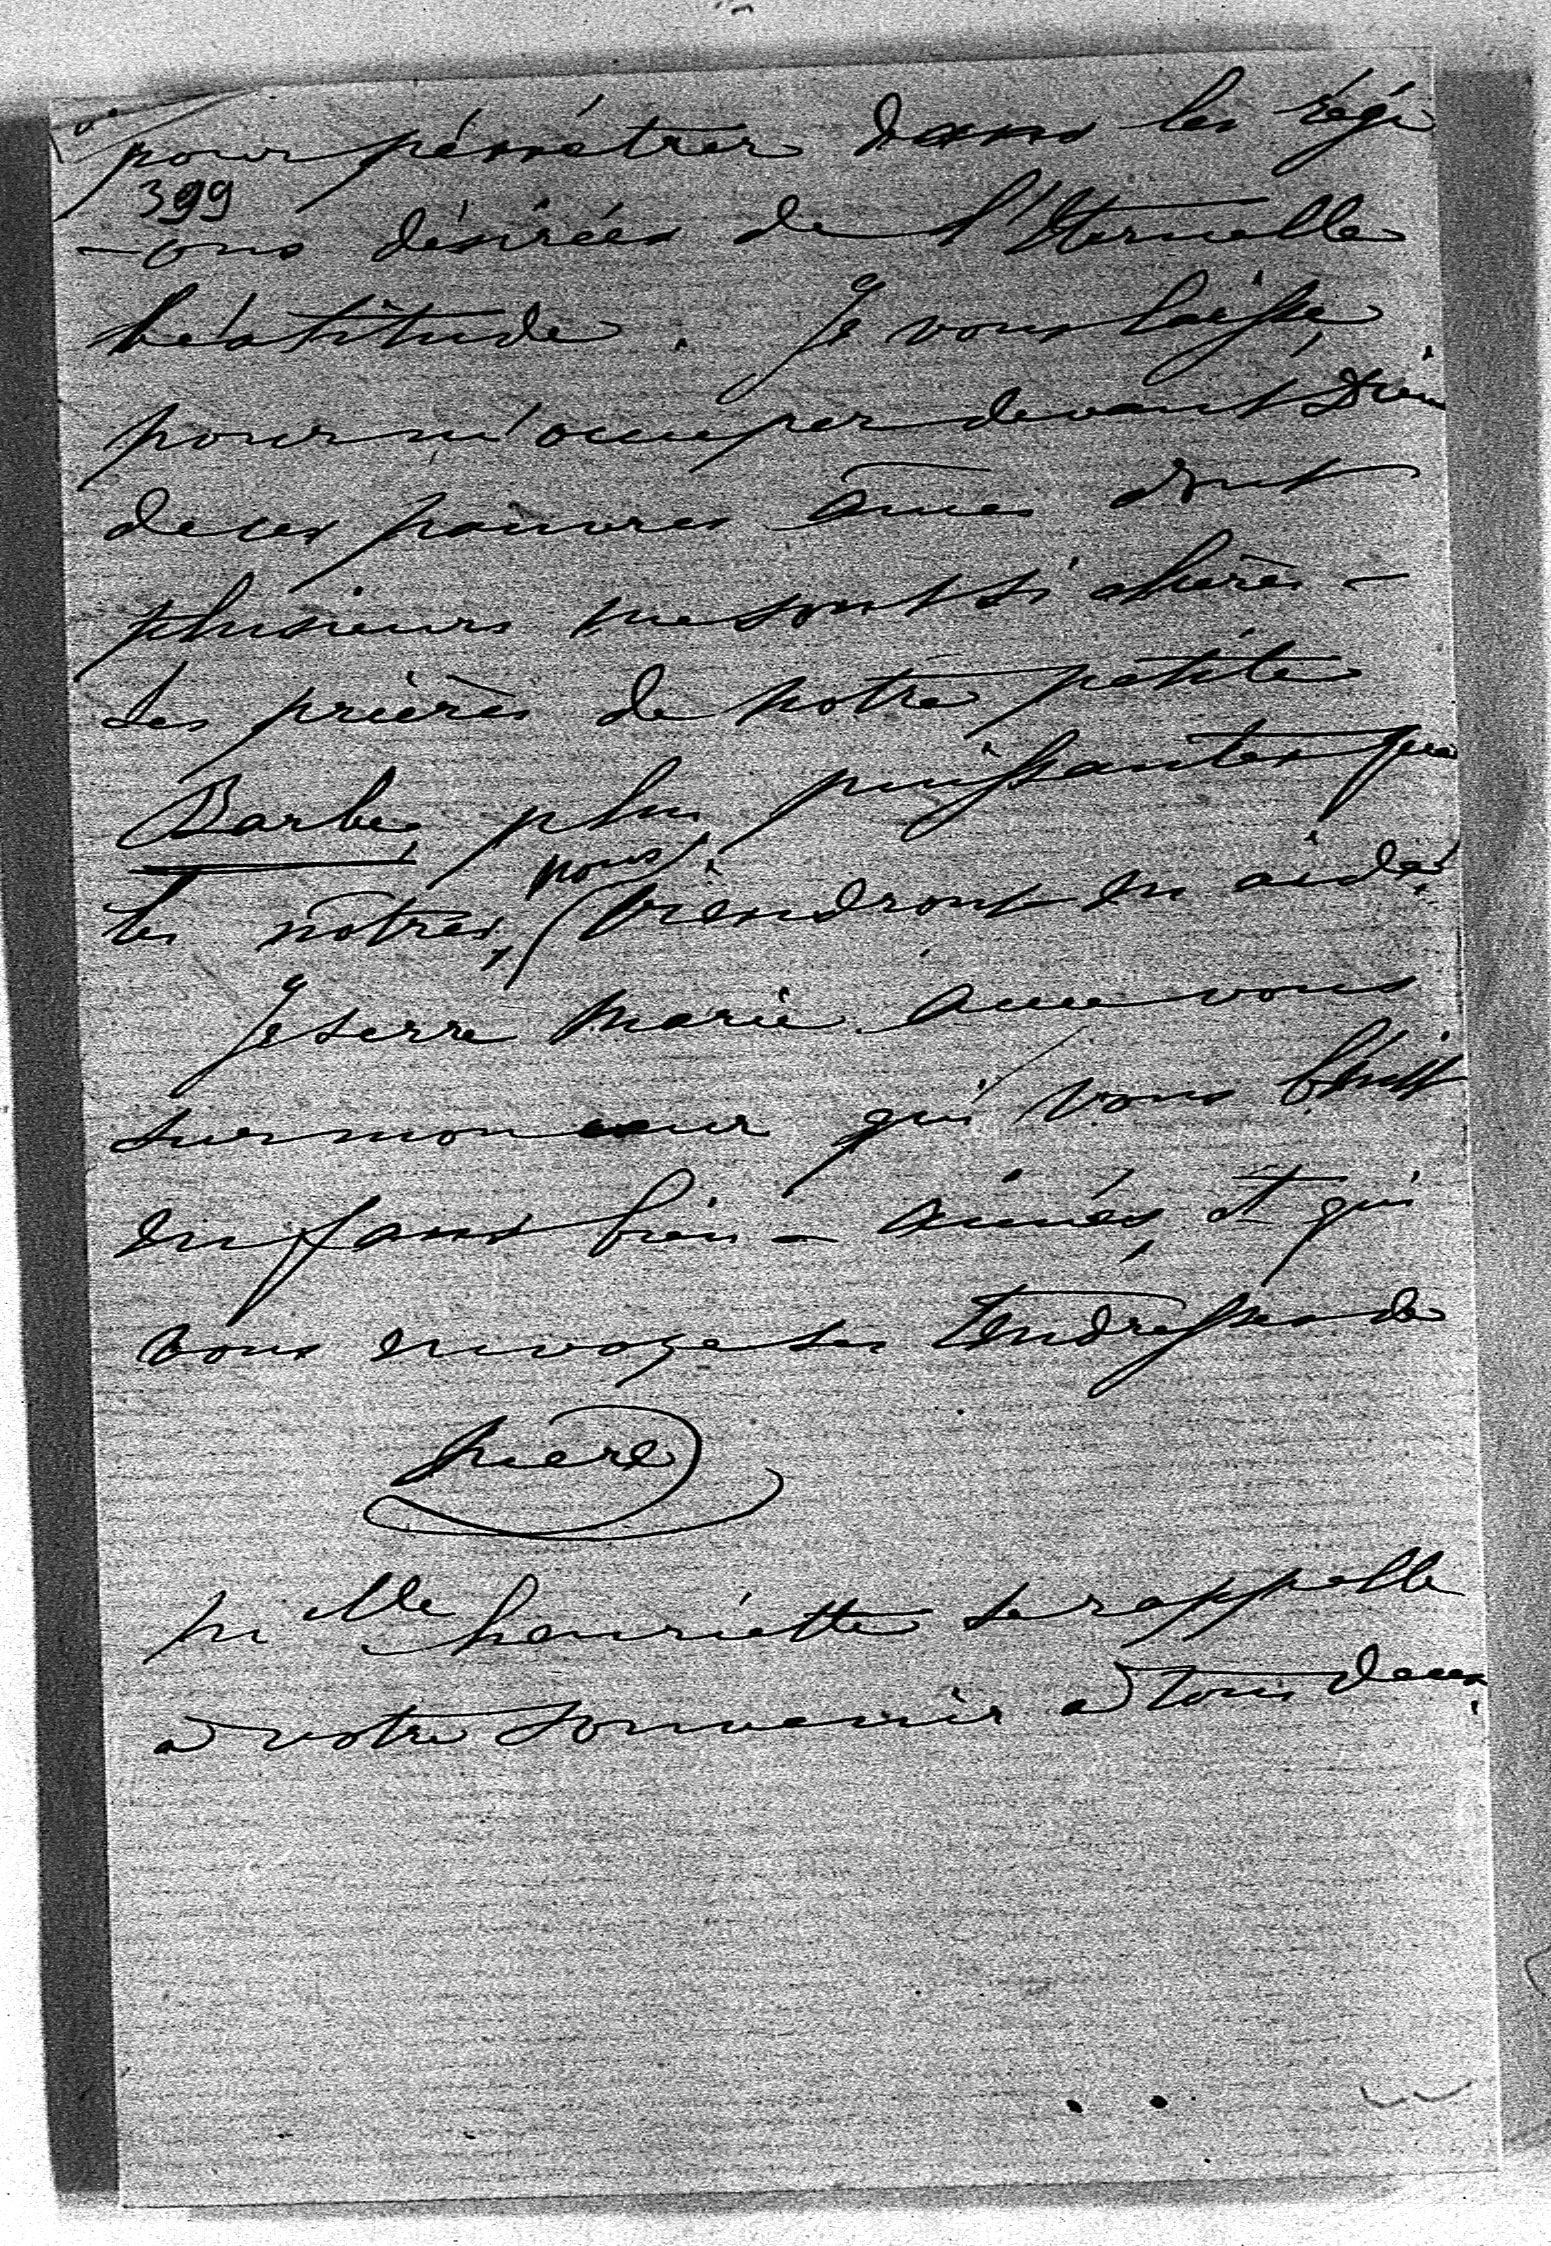 pour pénétrer dans les régi
399
-ons désirées de l'Eternelle
béatitude. Je vous laisse,
pour m'occuper devant Dieu
de ces pauvres âmes dont
plusieurs me sont si chères -
Les prières de notre petite
Barbe, plus puissantes que
les nôtres, nous viendront en aide.
Je serre Marie avec vous
sur mon cœur qui vous bénit
enfans bien-aimés, et qui
vous envoye ses tendresses de
mère
Melle henriette se rappelle
à votre souvenir à tous deux.